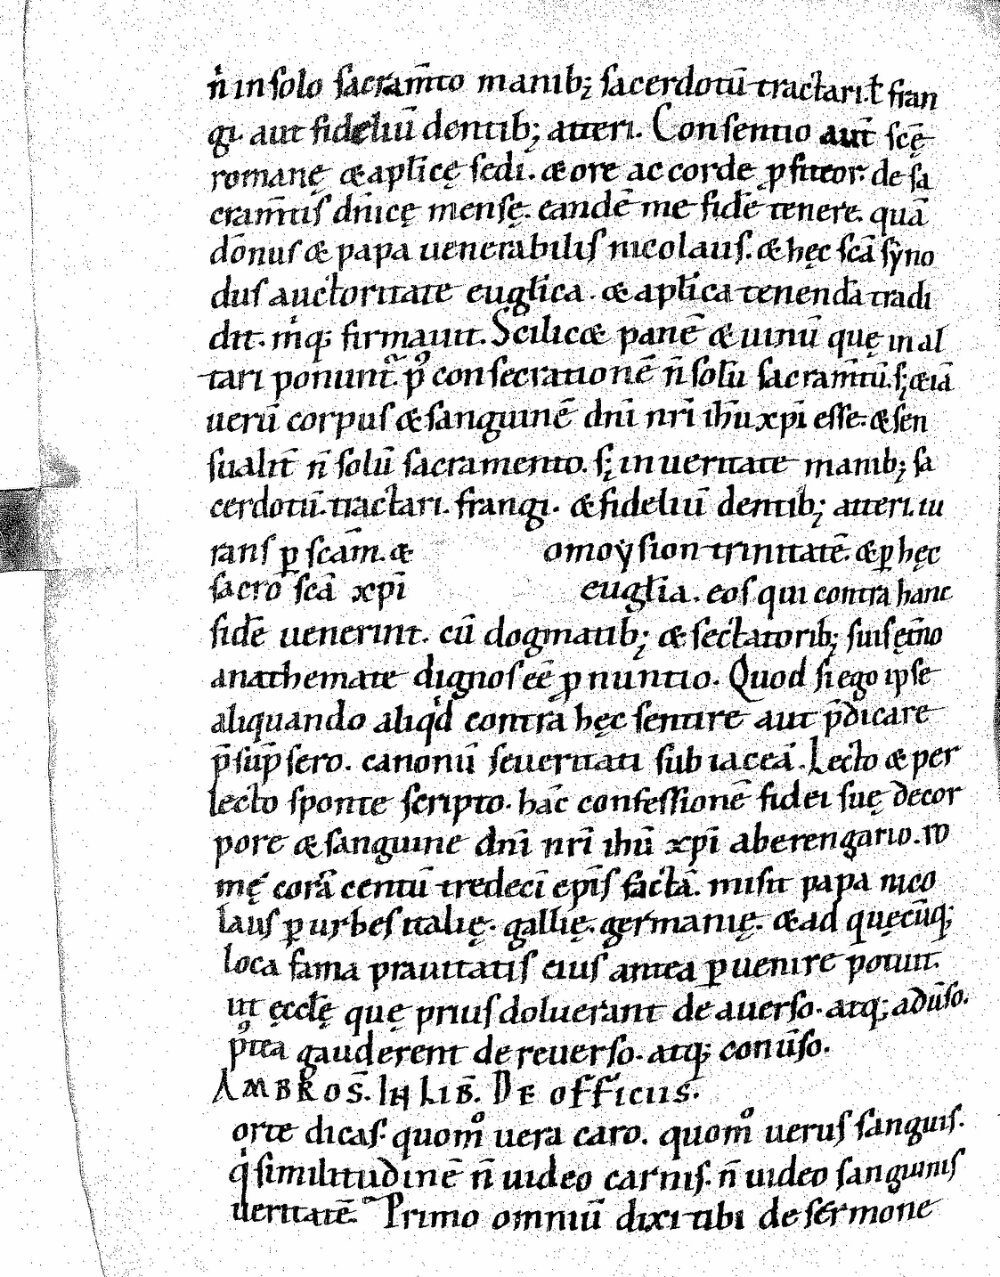 n̄ in solo sacram̄to manib; sacerdotū tractari. ł fran
gi. aut fideliū dentib; atteri. Consentio aut̄ scę̄
romanę & apl̄icę sedi. & ore ac corde ꝓfiteor. de sa
cram̄tis dn̄icę mensę. eandē me fidē tenere. quā
dōnus & papa uenerabilis nicolaus. & hęc scā syno
dus auctoritate eugl̄ica. & apl̄ica tenendā tradi
dit. mꝗ; firmauit. Scilic& panē & uinū quę in al
tari ponunt̄. p̄ consecrationē n̄ solū sacram̄tū. s; & iā
uerū corpus & sanguinē dn̄i nr̄i ihū xp̄i esse. & sen
sualit̄ n̄ solū sacramento. s; in ueritate manib; sa
cerdotū. tractari. frangi. & fideliū dentib; atteri. iu
rans ꝑ scām. & omoysion trinitatē. & ꝑ hęc
sacro scā xp̄i eugl̄ia. eos qui contra hanc
fidē uenerint. cū dogmatib; & sectatorib; suis ęt̄no
anathemate dignos eē ꝓnuntio. Quod si ego ipse
aliquando aliqd contra hęc sentire aut p̄dicare
p̄sūpsero. canonū seueritati subiaceā. Lecto & per
lecto sponte scripto. hāc confessionē fidei suę de cor
pore & sanguine dn̄i nr̄i ihū xp̄i a berengario. ro
mę corā centū tredecī ep̄is factā. misit papa nico
laus ꝑ urbes italię. gallię. germanię. & ad quęcūq;
loca fama prauitatis eius antea ꝑuenire potuit.
ut ęccl̄ę quę prius doluerant de auerso. atq; adūso.
p̄tea gauderent de reuerso. atq; conūso.
AMBROS̄. IN LIB̄. DE OFFICIIS.
orte dicas. quom̊ uera caro. quom̊ uerus sanguis.
q̇ similitudinē n̄ uideo carnis. n̄ uideo sanguinis
ueritatē. Primo omniū dixi tibi de sermone